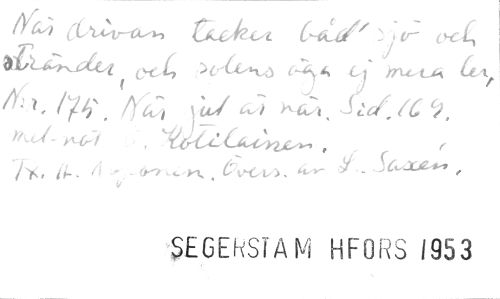 När drivan täcker båd' sjö och
stränder, och solens öga ej mera ler,
N:r. 175. När jul är när. Sid. 169.
mel-not Kotilainen.
Tx. H. Övers. av L. Saxén.
SEGERSTAM HFORS 1953